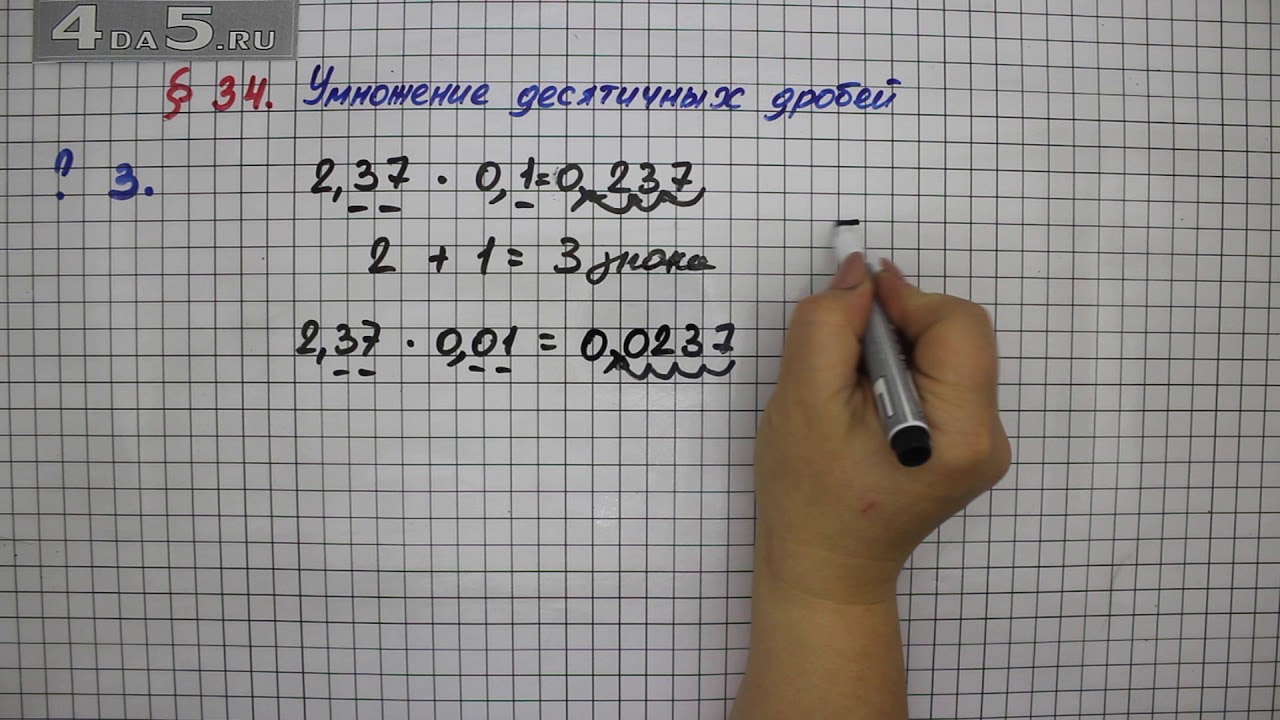 4DA5.RU
§ 34. Умножение десятичных дробей
? 3. 2,37 · 0,1 = 0,237
2 + 1 = 3 знака
2,37 · 0,01 = 0,0237